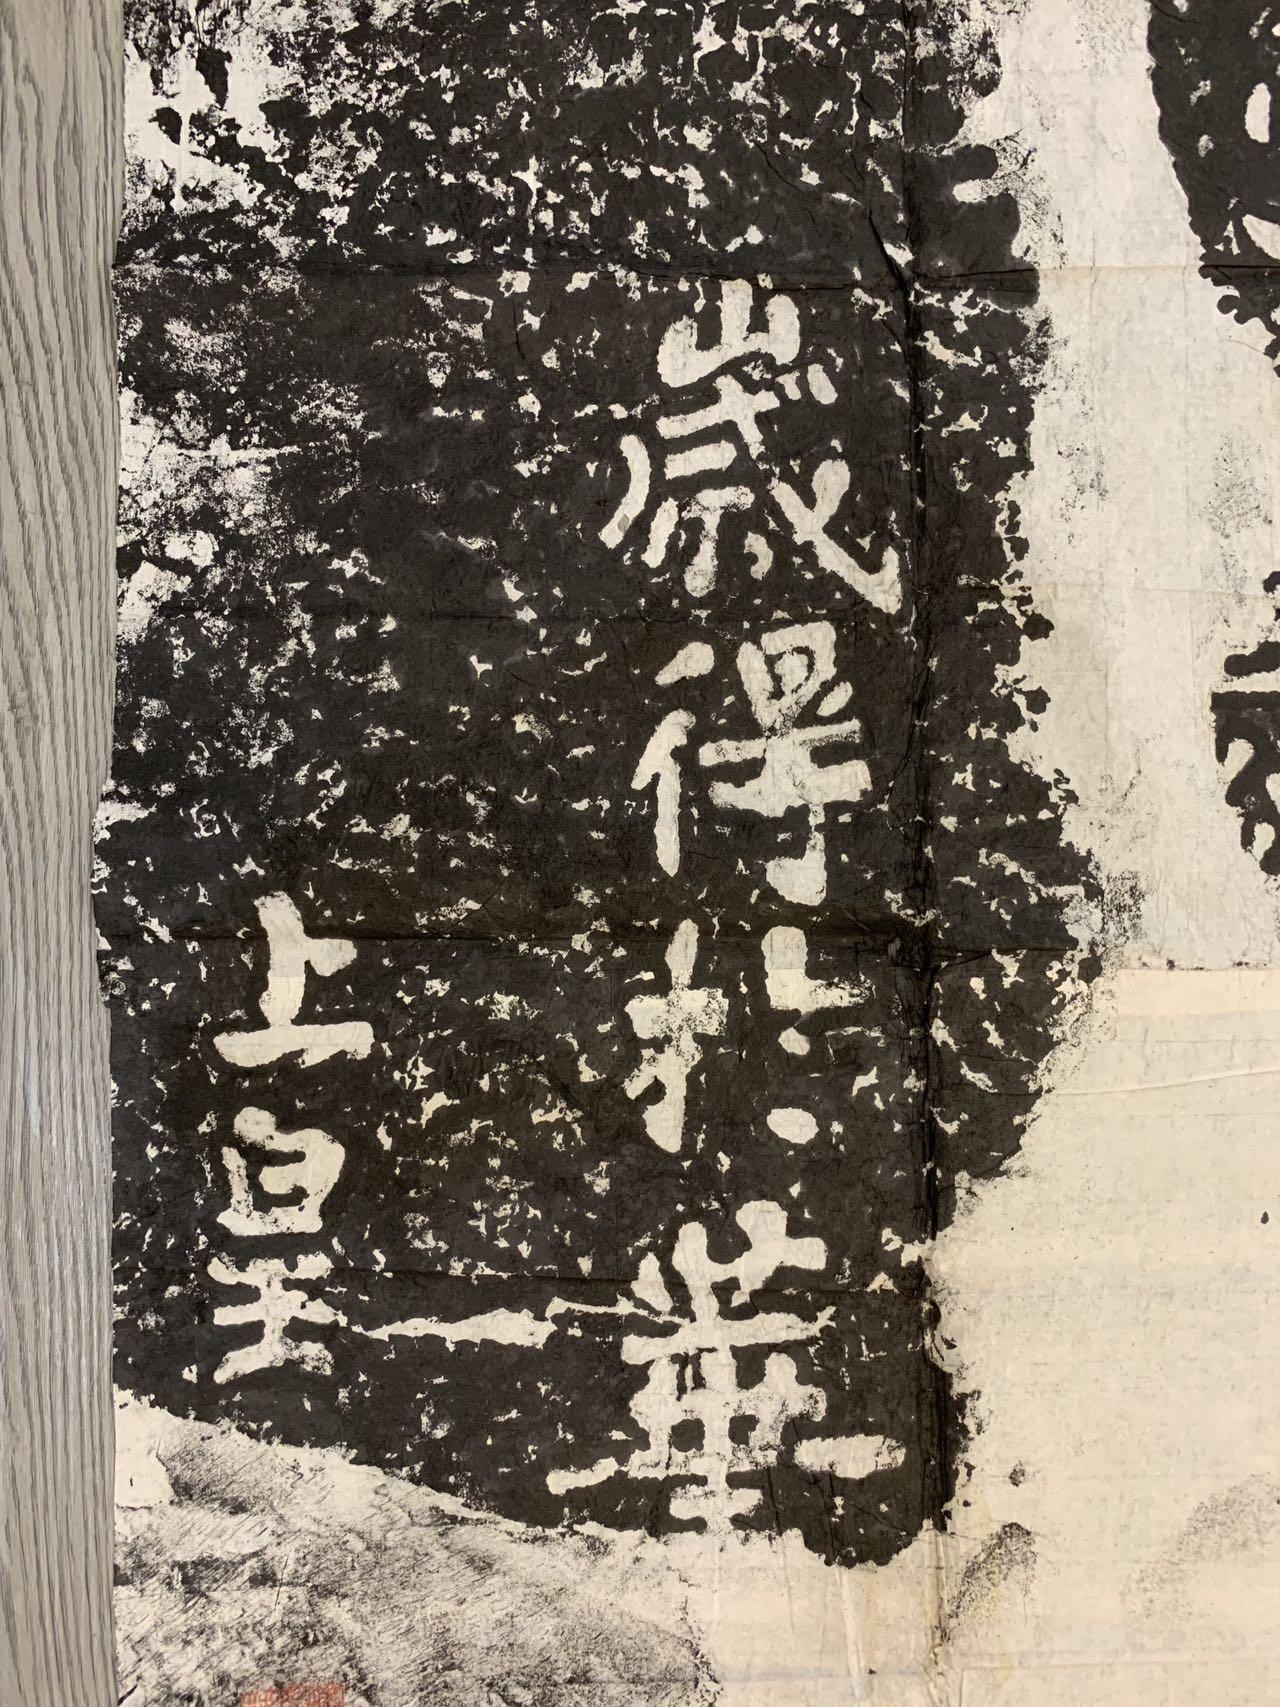 歲得於華
上皇